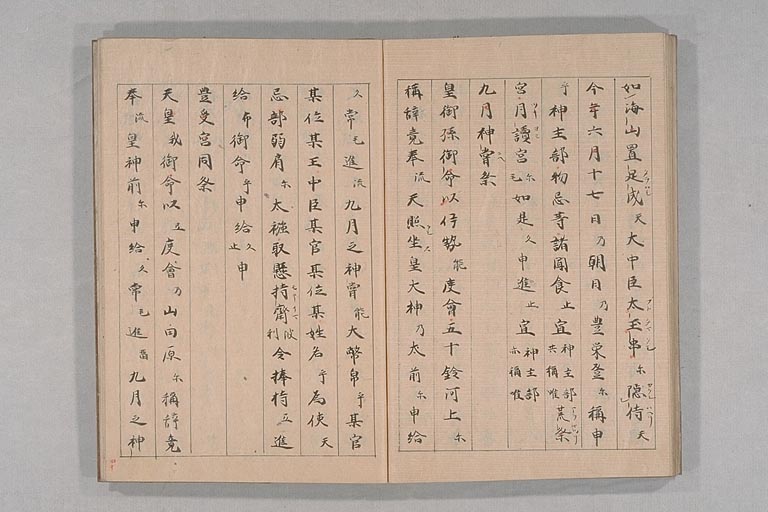 如海山置足成天大中臣太玉串尓隠侍天
今年六月十七日乃朝日乃豊栄登尓稱申
乎神主部物忌等諸聞食止宣神主部共稱唯荒祭
宮月讀宮尓毛如是久申進止宣神主部亦稱唯
九月神甞祭
皇御孫御命以伊勢能度會五十鈴河上尓
稱辞竟奉流天照坐皇大神乃太前尓申給
久常毛進流九月之神甞能大幣帛乎某官
某位某王中臣某官某位某姓名乎為使天
忌部弱肩尓太襁取懸持齋波利令捧持弖進
給布御命乎申給久止申
豊受宮同祭
天皇我御命以弖度會乃山田原尓稱辞竟
奉流皇神前尓申給久常毛進留九月之神